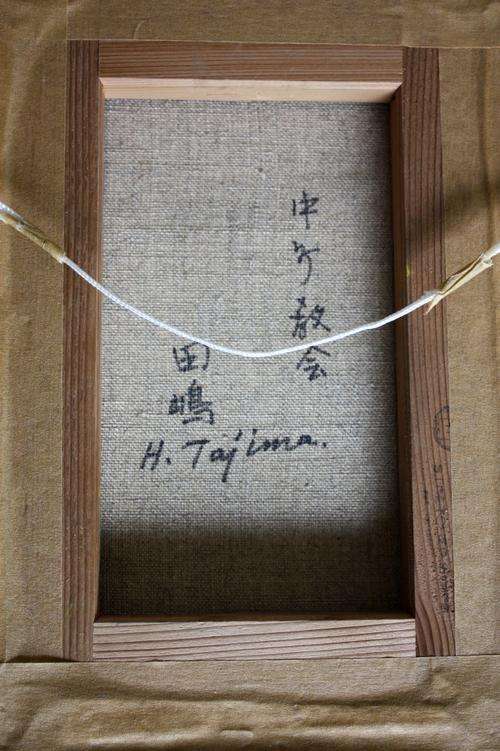 中町教会
田嶋
H. Tajima.